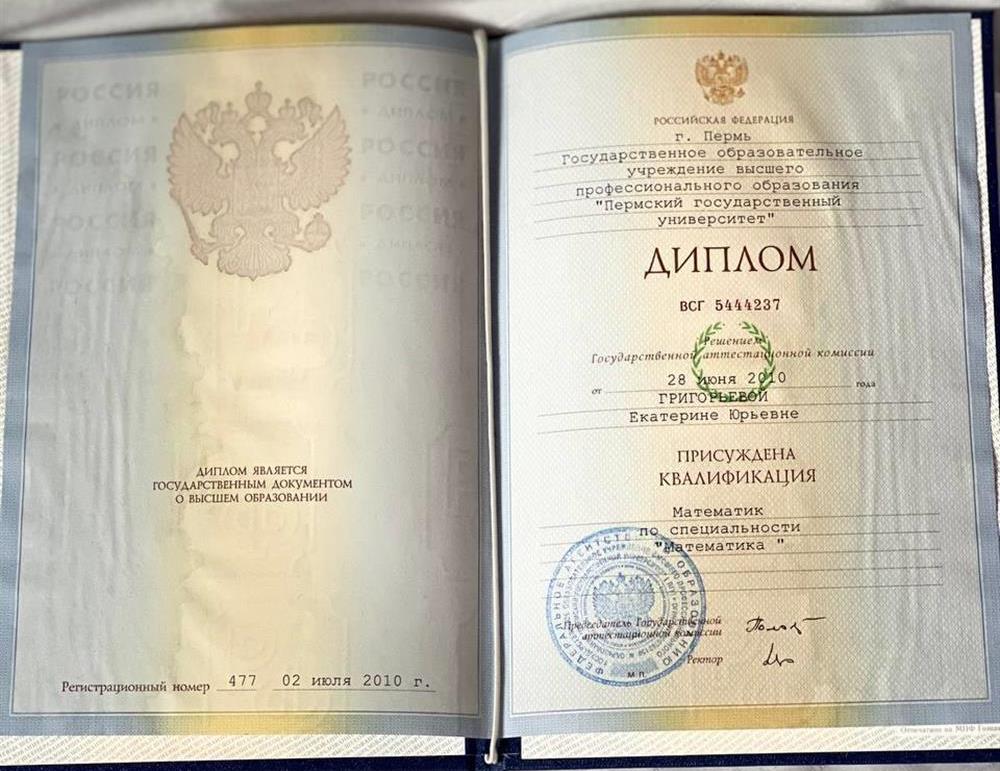 РОССИЯ
РОССИЯ
• ДИПЛОМ •
• ДИПЛОМ •
РОССИЯ
РОССИЯ
• ДИПЛОМ •
• ДИПЛОМ •
РОССИЯ
РОССИЯ
• ДИПЛОМ •
• ДИПЛОМ •
РОССИЯ
РОССИЯ
ДИПЛОМ ЯВЛЯЕТСЯ
ГОСУДАРСТВЕННЫМ ДОКУМЕНТОМ
О ВЫСШЕМ ОБРАЗОВАНИИ
Регистрационный номер 477 02 июля 2010 г.
РОССИЙСКАЯ ФЕДЕРАЦИЯ
г. Пермь
Государственное образовательное
учреждение высшего
профессионального образования
"Пермский государственный
университет"
ДИПЛОМ
ВСГ 5444237
Решением
Государственной аттестационной комиссии
от 28 июня 2010 года
ГРИГОРЬЕВОЙ
Екатерине Юрьевне
ПРИСУЖДЕНА
КВАЛИФИКАЦИЯ
Математик
по специальности
"Математика "
ФЕДЕРАЛЬНОЕ АГЕНТСТВО ПО ОБРАЗОВАНИЮ
Председатель Государственной
аттестационной комиссии
Ректор
М П
Отпечатано на МПФ Гознака